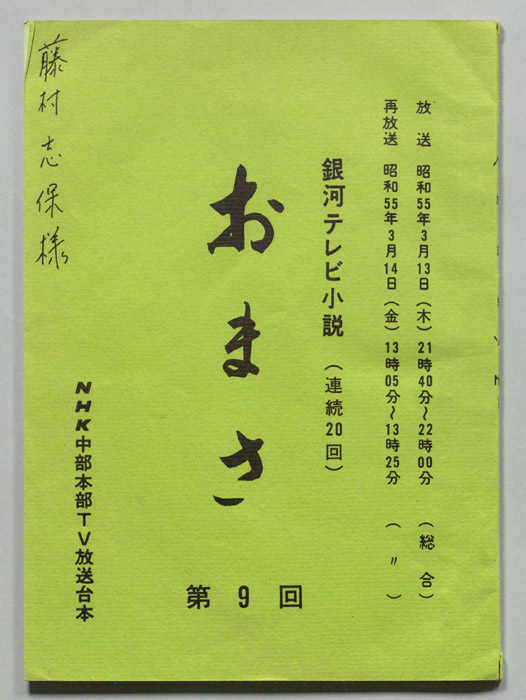 放送 昭和55年3月13日(木)21時40分~22時00分 (総合)
再放送 昭和55年3月14日(金)13時05分~13時25分 ( 〃 )
銀河テレビ小説 (連続20回)
おまさ
第9回
NHK中部本部TV放送台本
藤村志保様